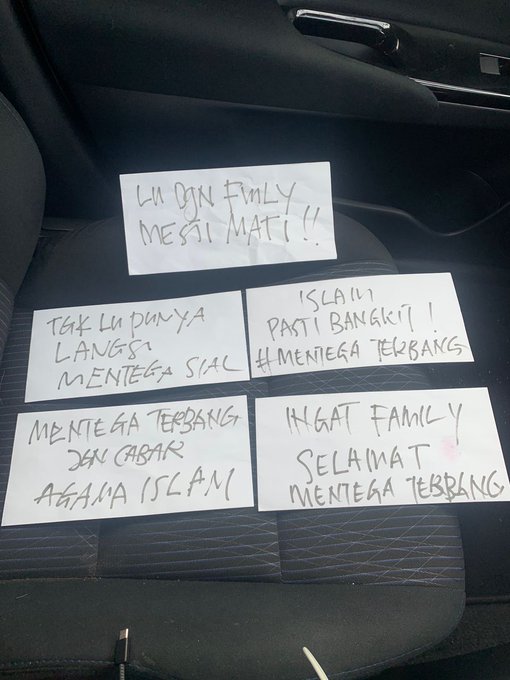 LU DGN FMLY
MESTI MATI !!
TGK LU PUNYA
LANGSI
MENTEGA SIAL
ISLAM
PASTI BANGKIT !
#MENTEGA TERBANG
MENTEGA TERBANG
JGN CABAR
AGAMA ISLAM
INGAT FAMILY
SELAMAT
MENTEGA TERBANG